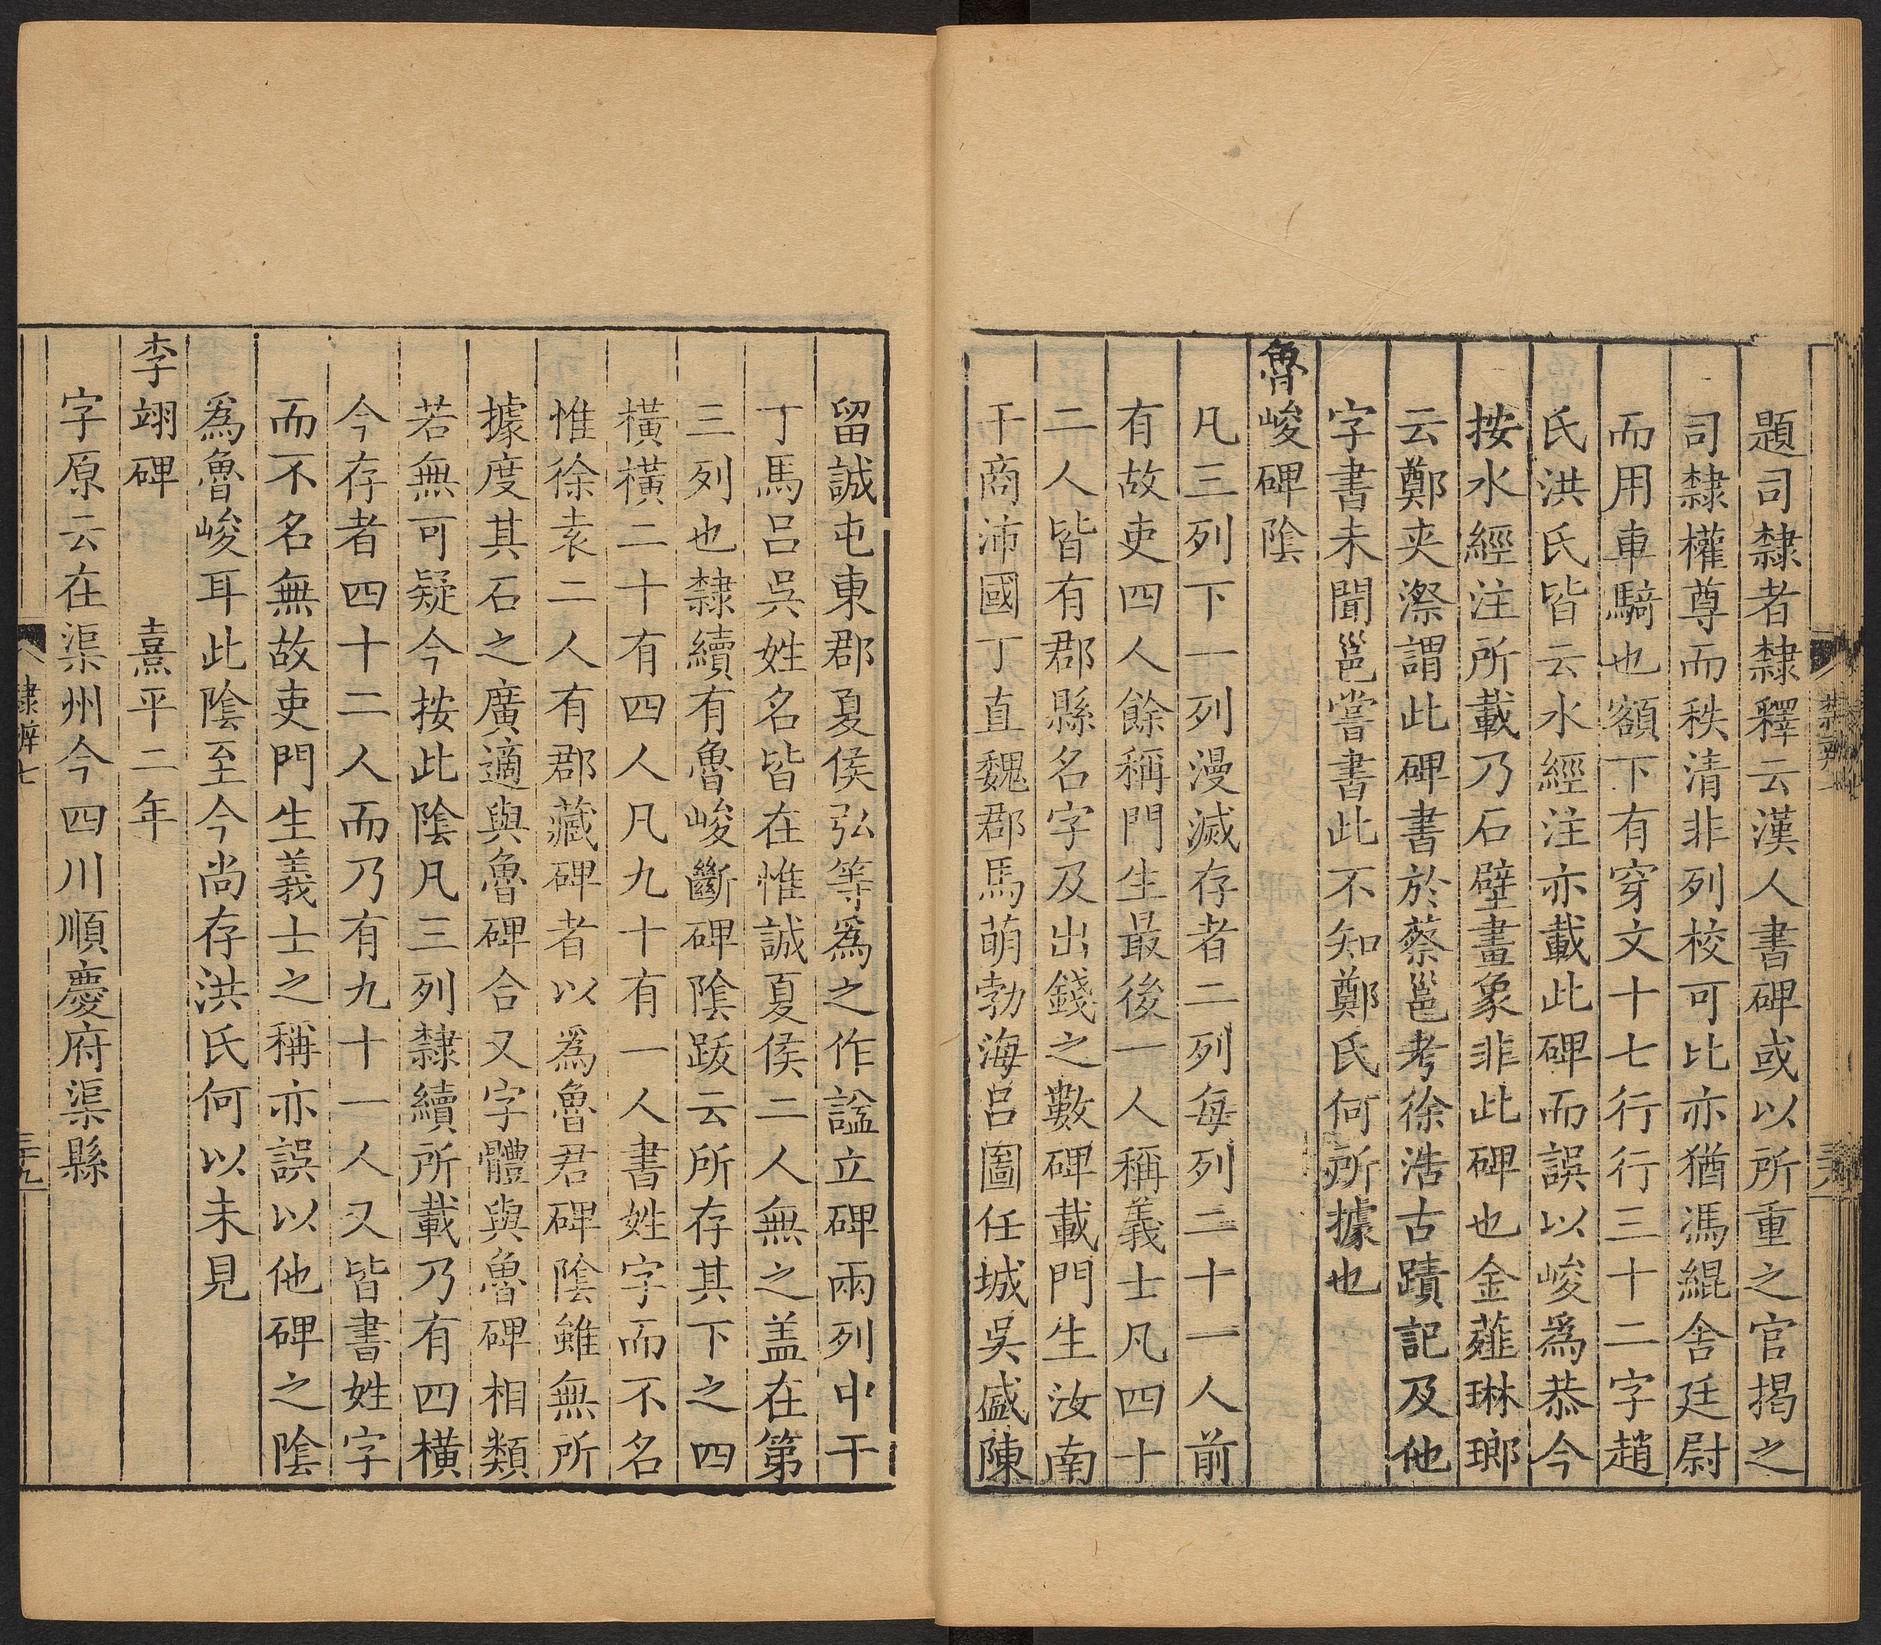 題司隸者隸釋云漢人書碑或以所重之官揭之
司隸權尊而秩清非列校可比亦猶馮緄舍廷尉
而用車騎也額下有穿文十七行行三十二字趙
氏洪氏皆云水經注亦載此碑而誤以峻爲恭今
按水經注所載乃石壁畫象非此碑也金薤琳瑯
云鄭夾漈謂此碑書於蔡邕考徐浩古蹟記及他
字書未聞邕嘗書此不知鄭氏何所據也
魯峻碑陰
凡三列下一列漫滅存者二列每列二十一人前
有故吏四人餘稱門生最後一人稱義士凡四十
二人皆有郡縣名字及出錢之數碑載門生汝南
干商沛國丁直魏郡馬萌勃海呂圖任城吳盛陳
留誠屯東郡夏侯弘等爲之作諡立碑兩列中干
丁馬呂吳姓名皆在惟誠夏侯二人無之盖在第
三列也隸續有魯峻斷碑陰跋云所存其下之四
橫橫二十有四人凡九十有一人書姓字而不名
惟徐袁二人有郡藏碑者以爲魯君碑陰雖無所
據度其石之廣適與魯碑合又字體與魯碑相類
若無可疑今按此陰凡三列隸續所載乃有四橫
今存者四十二人而乃有九十一人又皆書姓字
而不名無故吏門生義士之稱亦誤以他碑之陰
爲魯峻耳此陰至今尚存洪氏何以未見
李翊碑 熹平二年
字原云在渠州今四川順慶府渠縣
隸辨七
三九